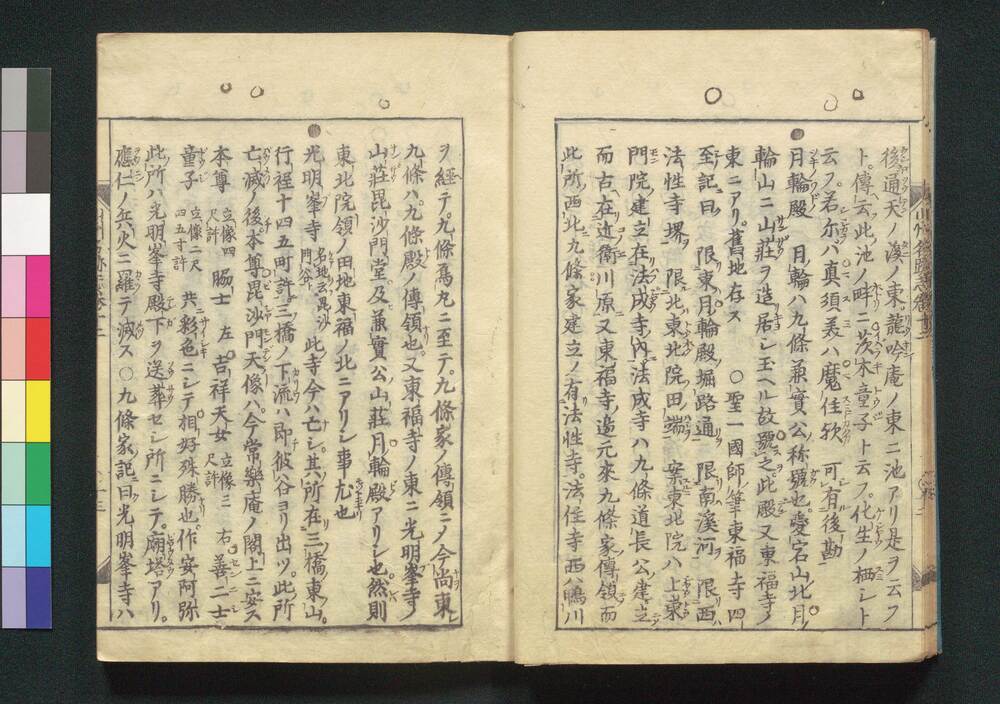 後通天ノ渡ノ東龍吟庵ノ東ニ池アリ是ヲ云フ
ト傳ヘ云此池ノ畔ニ茨木童子ト云フ化生ノ栖シト
云フ若尓ハ真須美ハ魔住欤 可有後勘
月輪殿 月輪ハ九條兼實公ノ称號也愛宕山北月ノ
輪山ニ山莊ヲ造居シ玉ヘル故號之此殿又東福寺ノ
東ニアリ舊地存ス ○聖一國師ノ筆東福寺四
至記曰 限東月輪殿堀路通 限南溪河 限西
法性寺堺 限北東北院田端 案東北院ハ上東
門院建立在法成寺内法成寺ハ九條道長公建立
而古在近衛川原又東福寺邊元來九條家傳領而
此所西北九條家建立ノ有法性寺法住寺西ハ鴨川
ヲ經テ九條髙九ニ至テ九條家ノ傳領ニノ今尚東
九條ハ九條殿ノ傳領也又東福寺ノ東ニ光明峯寺ノ
山莊毘沙門堂及兼實公山莊月輪殿アリシ也然則
東北院領ノ田地東福ノ北ニアリシ事尤也
光明峯寺 名地云毘沙門谷 此寺今ハ亡シ其所在三橋東山
行程十四五町許三橋ノ下流ハ即彼谷ヨリ出ツ此所
亡滅ノ後本尊毘沙門天像ハ今常樂庵ノ閣上ニ安ス
本尊 立像四尺許 脇士 左吉祥天女 立像三尺許 右善ニ士
童子 立像二尺四五寸許 共彩色ニシテ相好殊勝也作安阿弥
此所ハ光明峯寺殿下ヲ送葬セシ所ニシテ廟塔アリ
應仁ノ兵火ニ羅テ滅ス ○九條家記曰光明峯寺ハ